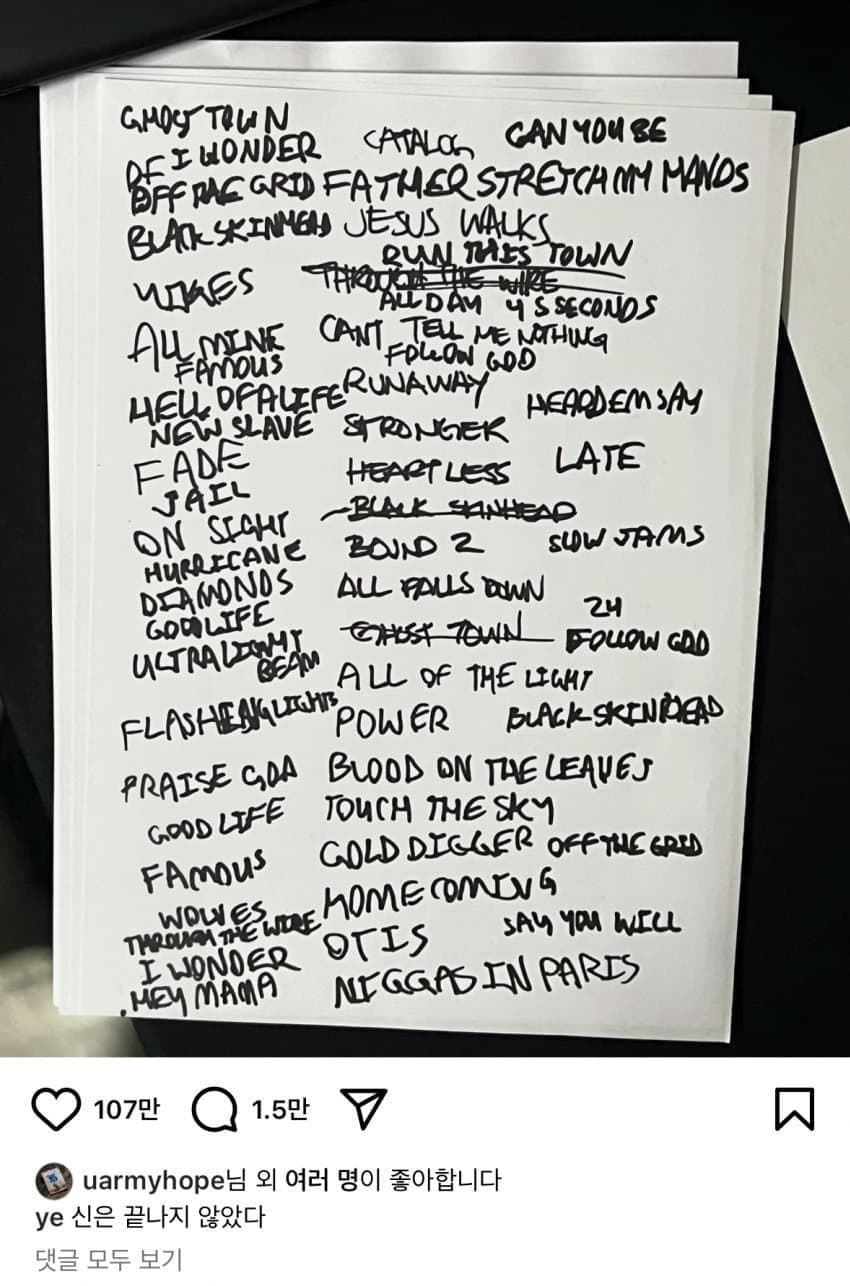 GHOST TOWN
CATALOG
CAN YOU BE
I WONDER
OFF THE GRID
FATHER STRETCH MY HANDS
BLACK SKINHEAD
JESUS WALKS
RUN THIS TOWN
YIKES
THROUGH THE WIRE
ALL DAY
4 5 SECONDS
ALL MINE
CANT TELL ME NOTHING
FAMOUS
FOLLOW GOD
HELL OF A LIFE
RUNAWAY
HEARD EM SAY
NEW SLAVE
STRONGER
FADE
HEARTLESS
LATE
JAIL
BLACK SKINHEAD
ON SIGHT
BOUND 2
SLOW JAMS
HURRICANE
DIAMONDS
ALL FALLS DOWN
24
GOOD LIFE
GHOST TOWN
FOLLOW GOD
ULTRALIGHT BEAM
ALL OF THE LIGHT
FLASHING LIGHTS
POWER
BLACK SKINHEAD
PRAISE GOD
BLOOD ON THE LEAVES
GOOD LIFE
TOUCH THE SKY
FAMOUS
GOLD DIGGER
OFF THE GRID
WOLVES
HOMECOMING
THROUGH THE WIRE
SAY YOU WILL
I WONDER
OTIS
HEY MAMA
NIGGAS IN PARIS
107만
1.5만
uarmyhope님 외 여러 명이 좋아합니다
ye 신은 끝나지 않았다
댓글 모두 보기